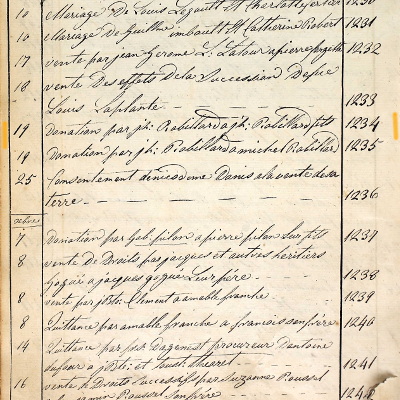 10 Mariage De Louis Legault et Charlotte 1230
10 Mariage De Guillme imbault et Catherine Robert 1231
17 vente par jean Gerome L. Latour a pierre 1232
18 vente Des effets de la Succession De pre
Louis Laplante 1233
19 Donation par jh: Robillard a jh: Robillard fils 1234
19 Donation par jh: Robillard a michel Robillard 1235
25 Consentement de a la vente de sa
terre 1236
7 Donation par Gab: pilon a pierre pilon Son fils 1237
8 vente De Droits par jacques et autres heritiers
Goguë a jacques gogue Leur pére 1238
8 vente par jBte: Clement a amable franche 1239
8 Quittance par amable franche a francois son frére 1240
14 Quittance par Dagenest procureur Dantoine
a jBte: et 1241
16 vente de Droits Successifs par Suzanne Roussel
Roussel Son frére